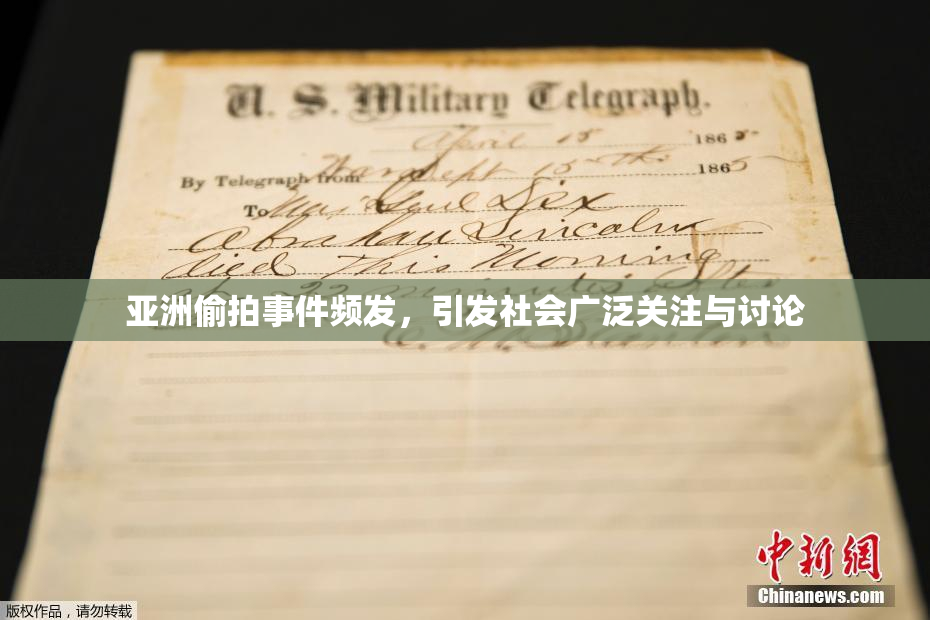 U. S. Military Telegraph.
April 15 1865
By Telegraph from War Dept 15th 1865
To Maj Genl Dix
Abraham Lincoln
died This Morning
at 22 minutes after
亚洲偷拍事件频发，引发社会广泛关注与讨论
E. M. Stanton
中新网
Chinanews.com
版权作品，请勿转载